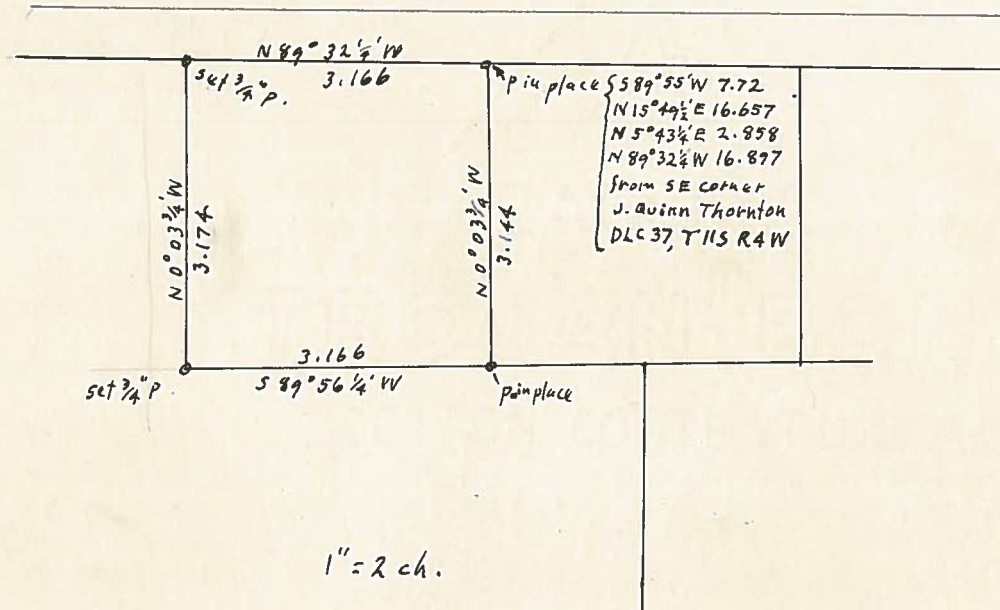 N 89° 32 1/4' W
3.166
set 3/4" P.
p in place
S 89° 55' W 7.72
N 15° 49 1/2' E 16.657
N 5° 43 1/4' E 2.858
N 89° 32 1/4' W 16.897
from SE corner
J. Quinn Thornton
DLC 37, T11S R4W
N 0° 03 3/4' W
3.174
N 0° 03 3/4' W
3.144
3.166
S 89° 56 1/4' W
set 3/4" P
p in place
1" = 2 ch.